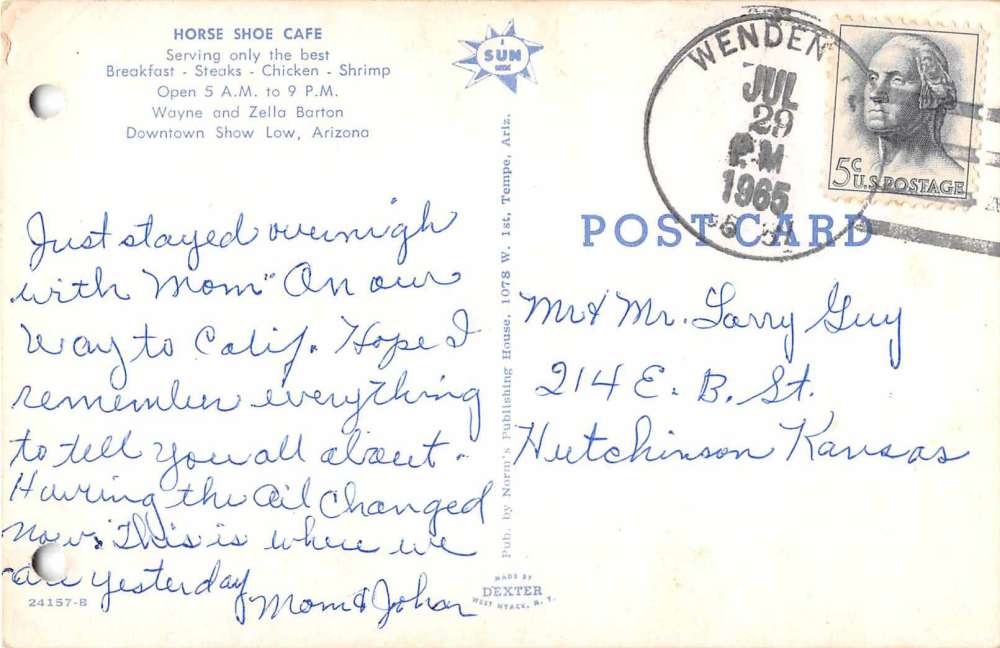 HORSE SHOE CAFE
Serving only the best
Breakfast - Steaks - Chicken - Shrimp
Open 5 A.M. to 9 P.M.
Wayne and Zella Barton
Downtown Show Low, Arizona
A
SUN
WENDEN
JUL
29
PM
1965
5¢
U.S. POSTAGE
POST CARD
Just stayed overnigh
with Mom" On our
way to Calif. Hope I
remember everything
to tell you all about.
Having the Oil Changed
now. This is where we
are yesterday
Mom &
Mr & Mr. Larry Guy
214 E. B. St.
Hutchinson Kansas
Pub. by Norm's Publishing House, 1078 W. 1st, Tempe, Ariz.
24157-B
MADE BY
DEXTER
WEST NYACK, N. Y.